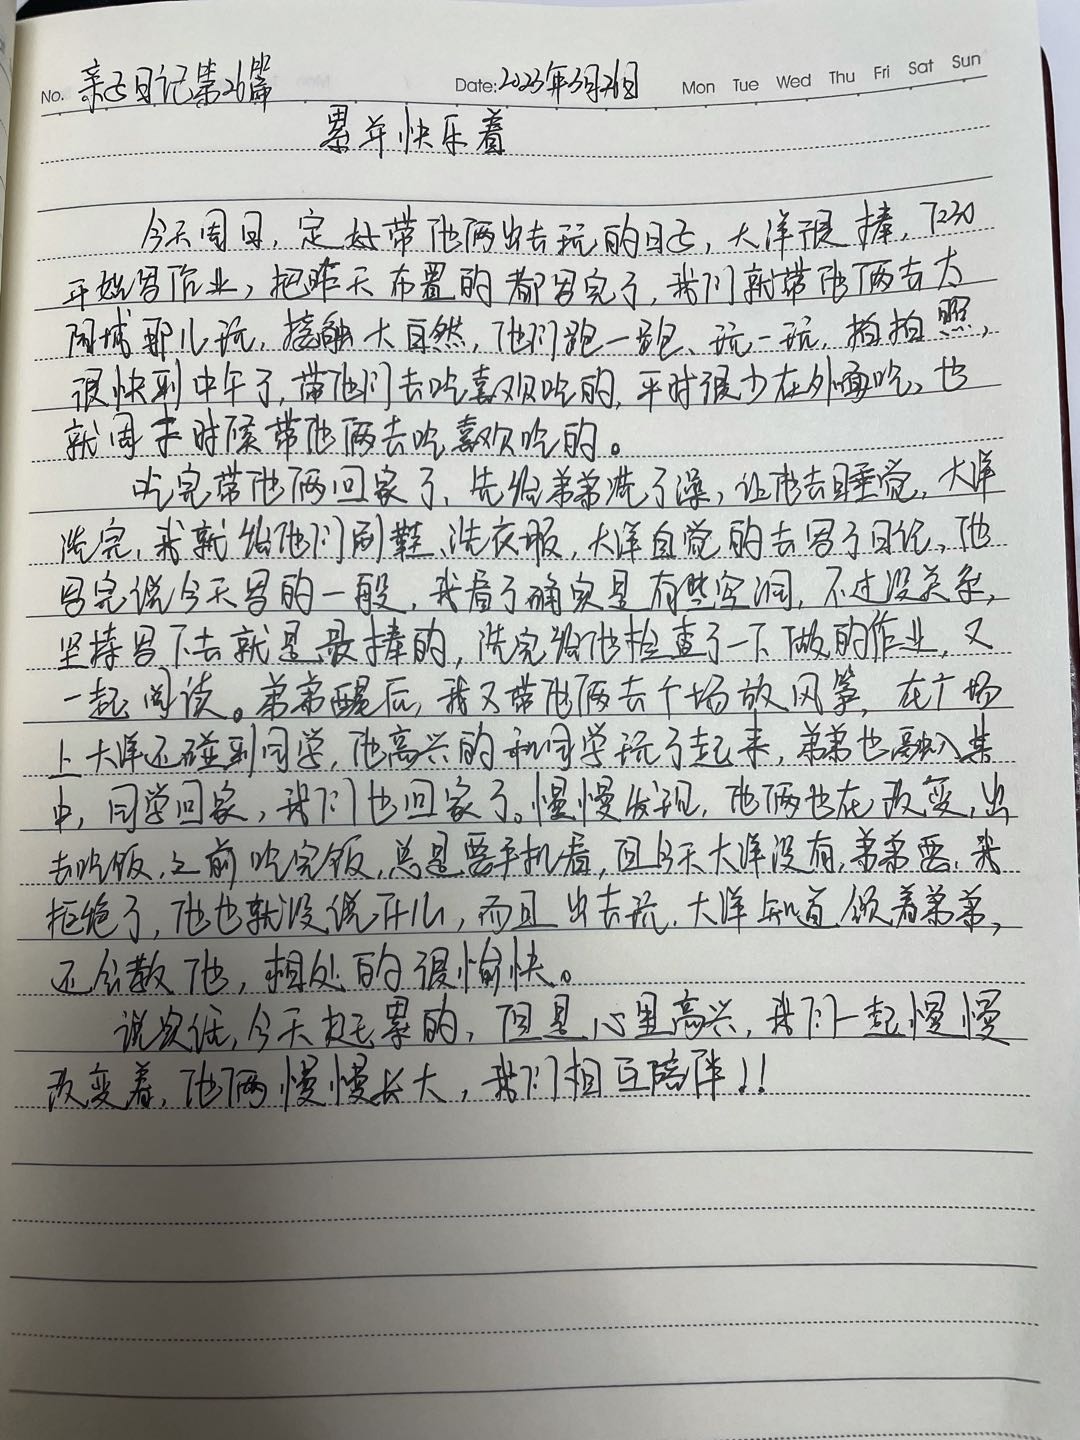 No. 亲子日记第26篇 Date: 2023年3月26日 Mon Tue Wed Thu Fri Sat Sun
累并快乐着
今天周日，定好带他俩出去玩的日子，大洋很棒，7:30
开始写作业，把昨天布置的都写完了，我们就带他俩去大
城那儿玩，接触大自然，他们跑一跑、玩一玩，拍拍照，
很快到中午了，带他们去吃喜欢吃的，平时很少在外面吃，也
就周末时候带他俩去吃喜欢吃的。
吃完带他俩回家了，先给弟弟洗了澡，让他去睡觉，大洋
洗完，我就给他们刷鞋、洗衣服，大洋自觉的去写了日记，他
写完说今天写的一般，我看了确实是有些空洞，不过没关系，
坚持写下去就是最棒的，洗完给他检查了一下做的作业，又
一起阅读。弟弟醒后，我又带他俩去广场放风筝，在广场
上大洋还碰到同学，他高兴的和同学玩了起来，弟弟也融入其
中，同学回家，我们也回家了。慢慢发现，他俩也在改变，出
去吃饭，之前吃完饭，总是要手机看，但今天大洋没有，弟弟要，我
拒绝了，他也就没说什么，而且出去玩，大洋知道领着弟弟，
还会教他，相处的很愉快。
说实话，今天挺累的，但是心里高兴，我们一起慢慢
改变着，他俩慢慢长大，我们相互陪伴！！